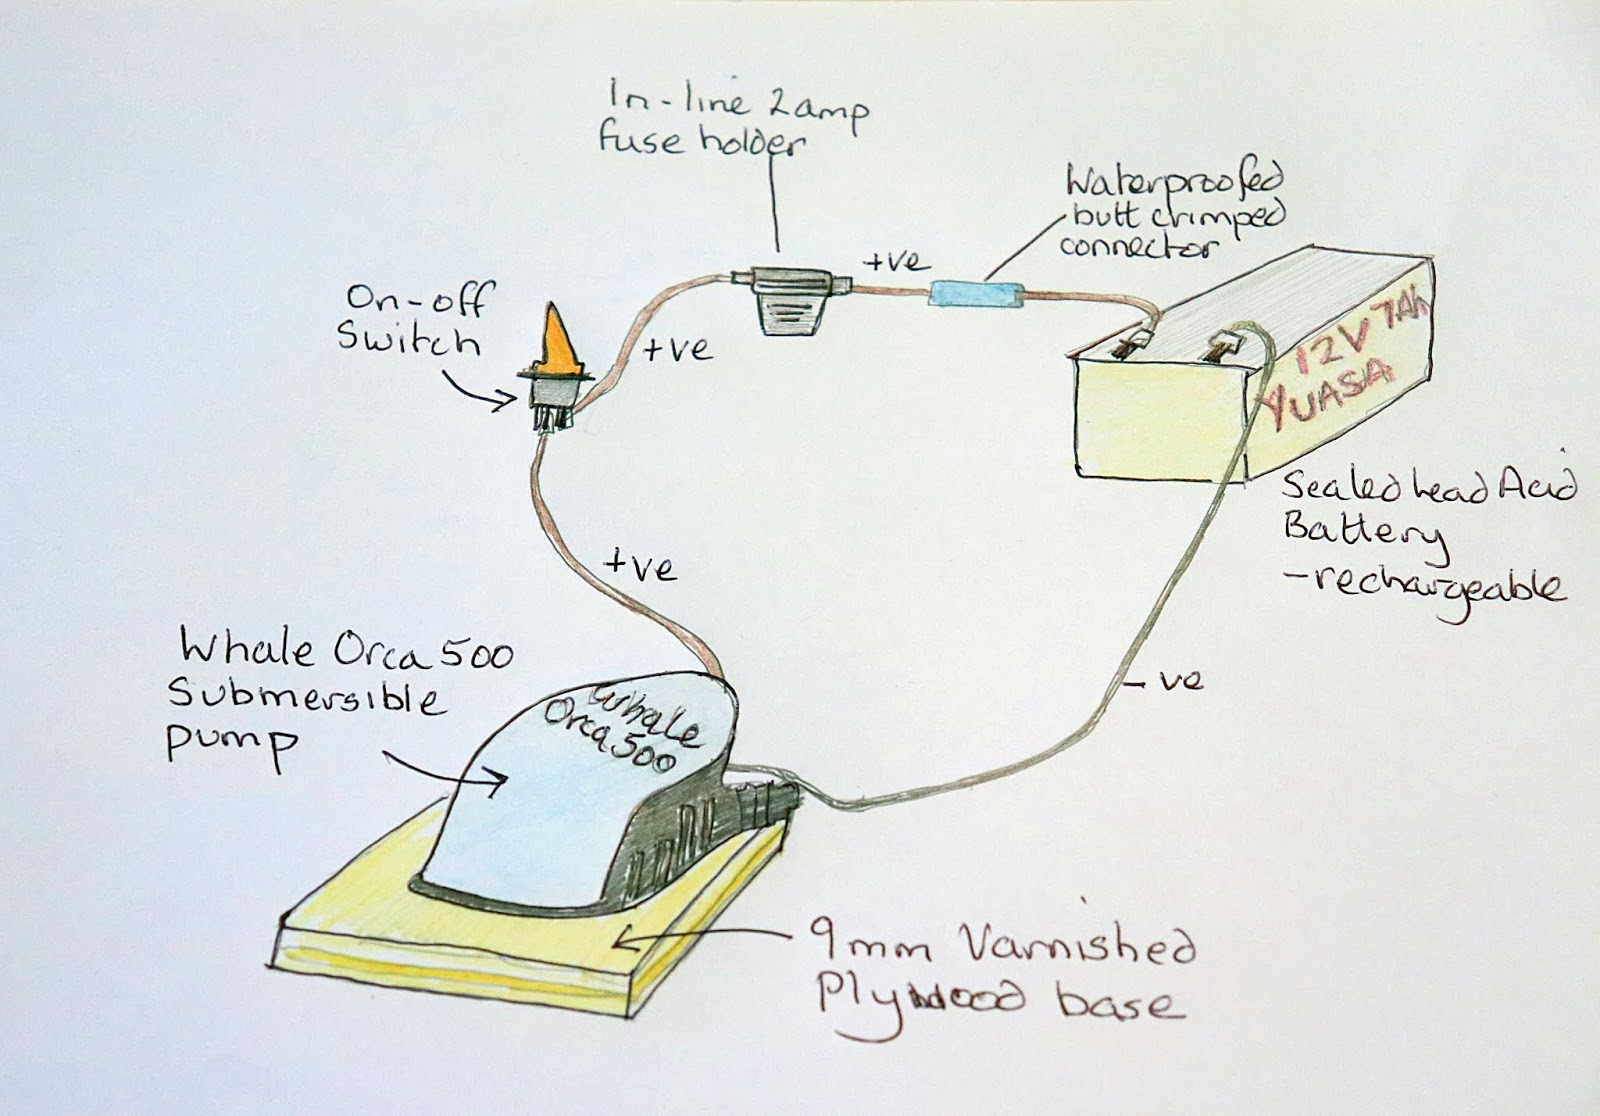 In-line 2amp
fuse holder
Waterproofed
butt crimped
connector
+ve
On-off
Switch
+ve
12V 7Ah
YUASA
Sealed Lead Acid
Battery
-rechargeable
+ve
Whale Orca 500
Submersible
pump
Whale
Orca 500
-ve
9mm Varnished
Plywood base